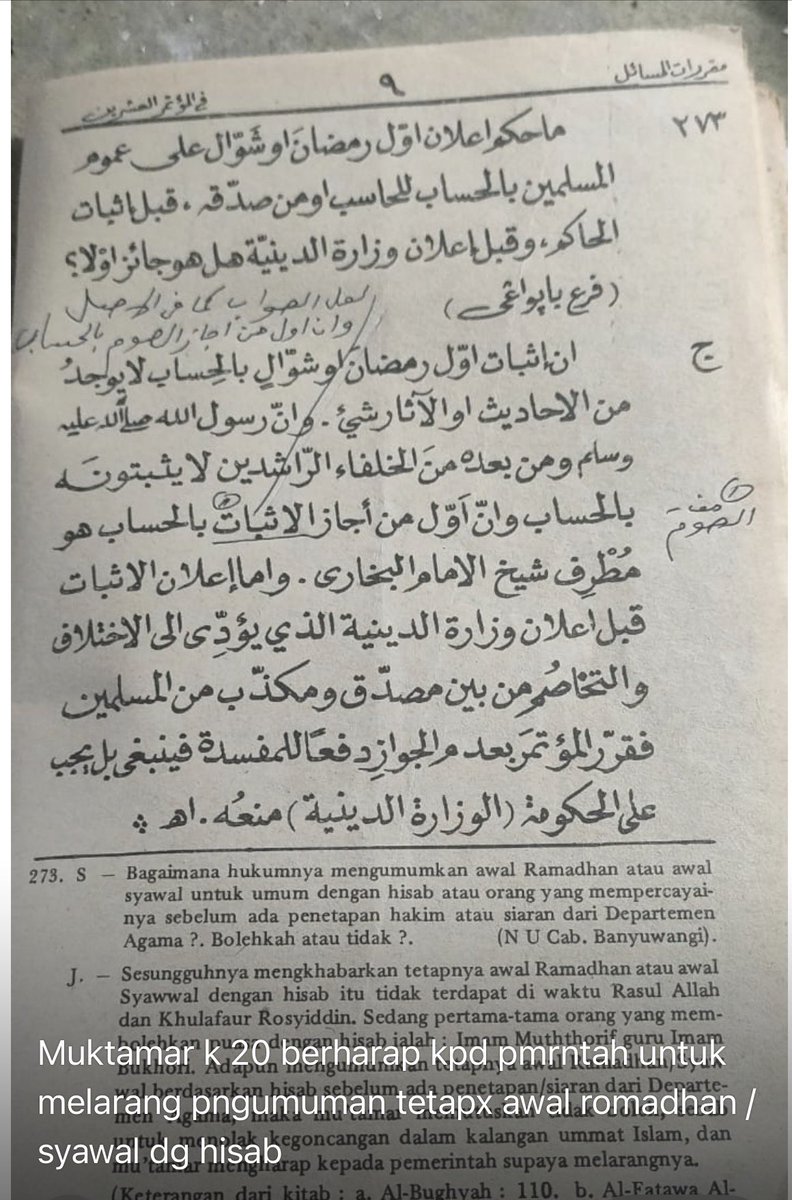 مقررات المسائل ٩ فى المؤتمر العشرين
٢٧٣ ماحكم اعلان اوّل رمضانَ او شَوّال على عموم
المسلمين بالحساب للحاسب او من صدّقه، قبل إثبات
الحاكم، وقبل إعلان وزارة الدينيّة هل هو جائز اولا؟
(فرع باپواڠى)
لعل الصواب كما فى الاصل
وان اول من اجاز الصوم بالحساب
ج ان إثبات اوّل رمضانَ او شوّالٍ بالحِساب لا يوجدُ
من الاحاديث او الآثار شيئ. وانّ رسول الله صلى الله عليه
وسلم ومن بعده منَ الخلفاء الرّاشدين لا يثبتونَه
بالحساب وانّ اَوّل من أجاز الاثبات بالحساب هو
الصوم
مُطْرِف شيخ الامام البخارى. واما إعلان الاثبات
قبل اعلان وزارة الدينية الذي يؤدِّى الى الاختلاف
والتخاصُم من بين مصدّق ومكذّب من المسلمين
فقرّر المؤتمَر بعدم الجوازِ دفعًا للمفسدة فينبغى بل يجب
على الحكومة (الوزارة الدينية) منعُه. اهـ
273. S — Bagaimana hukumnya mengumumkan awal Ramadhan atau awal
syawal untuk umum dengan hisab atau orang yang mempercayai-
nya sebelum ada penetapan hakim atau siaran dari Departemen
Agama ?. Bolehkah atau tidak ?. (N U Cab. Banyuwangi).
J. — Sesungguhnya mengkhabarkan tetapnya awal Ramadhan atau awal
Syawwal dengan hisab itu tidak terdapat di waktu Rasul Allah
dan Khulafaur Rosyiddin. Sedang pertama-tama orang yang mem-
bolehkan puasa dengan hisab ialah : Imam Muththorif guru Imam
Bukhori. Adapun mengumumkan tetapnya awal Ramadhan/Syaw
wal berdasarkan hisab sebelum ada penetapan/siaran dari Departe-
men Agama, maka mu'tamar memutuskan tidak
untuk menolak kegoncangan dalam kalangan ummat Islam, dan
mu'tamar mengharap kepada pemerintah supaya melarangnya.
(Keterangan dari kitab : a. Al-Bughyah : 110. b. Al-Fatawa Al-
Muktamar k 20 berharap kpd pmrntah untuk
melarang pngumuman tetapx awal romadhan /
syawal dg hisab